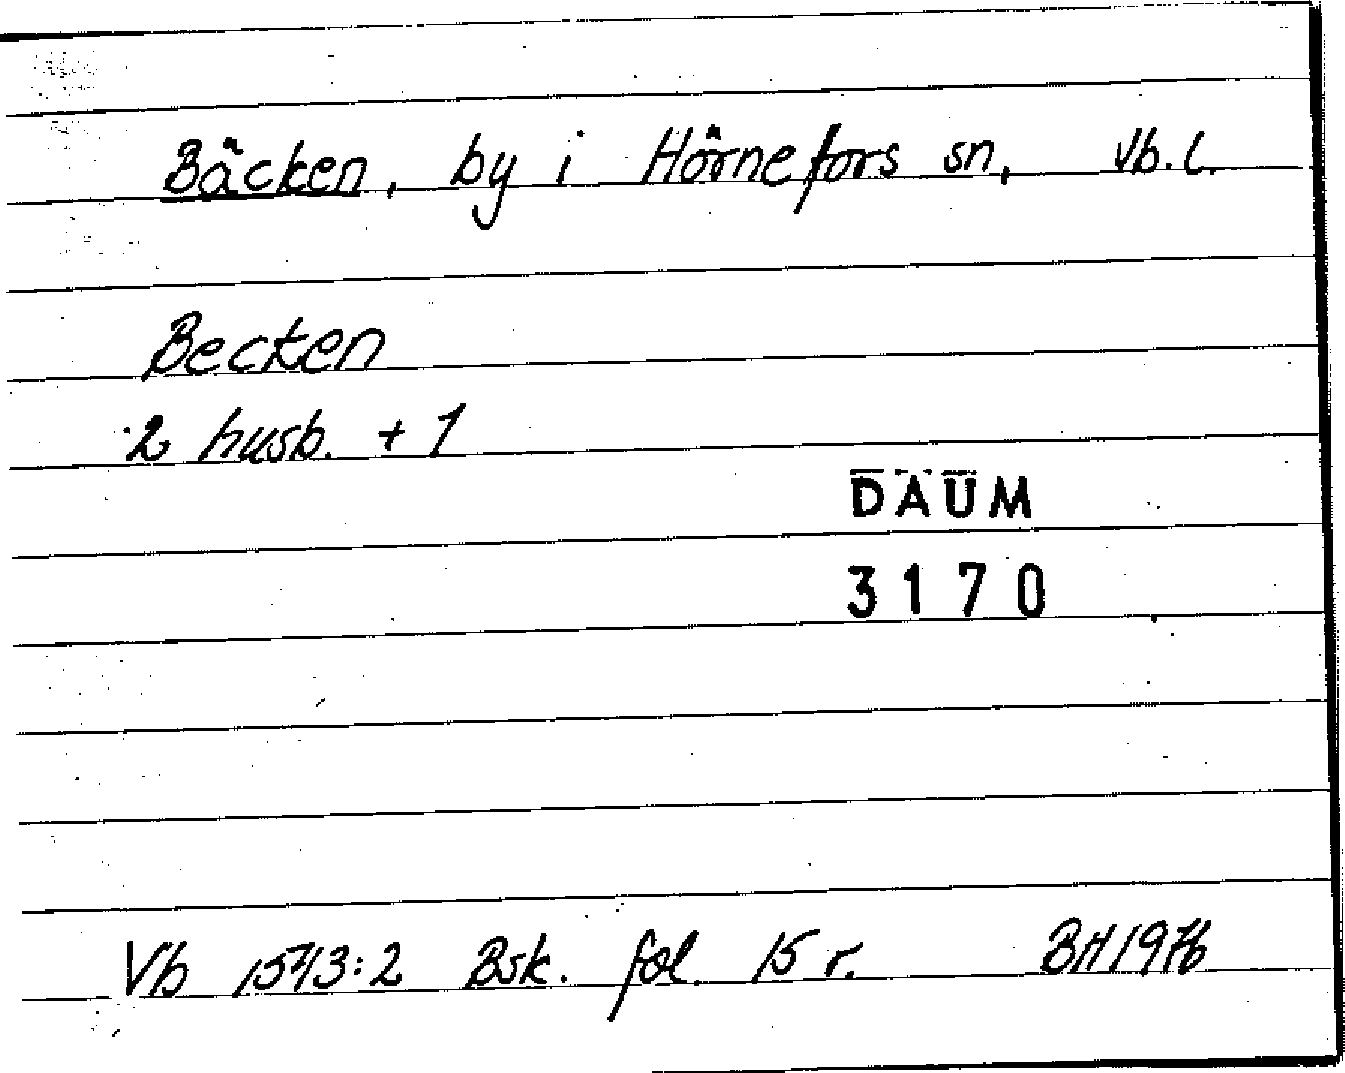 Bäcken, by i Hörnefors sn, Vb. l.
Becken
2 husb. + 1
DAUM
3170
Vb 1543:2 Bsk. fol. 15 r. BH 1976